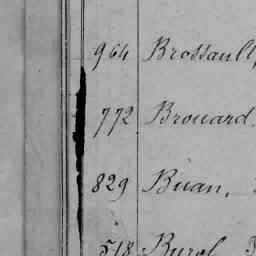 964 Brossault,
772 Brouard
829 Buan,
518 Burel